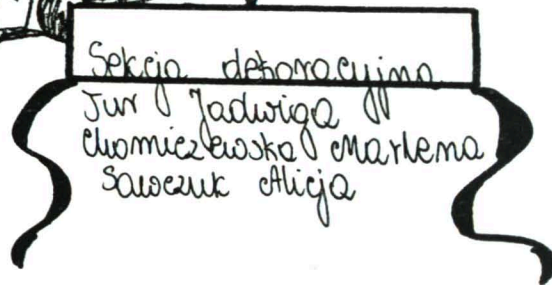 Sekcja dekoracyjna
Jur Jadwiga
Chomiczewska Marlena
Sawczuk Alicja